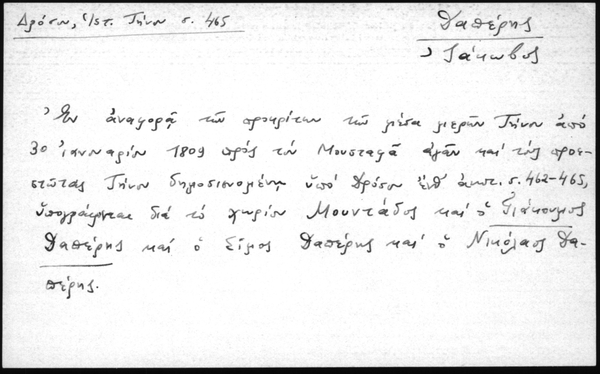 Δρόσου, Ἱστ. Τήνου σ. 465
Δαπέρης
Ἰάκωβος
Ἐν ἀναφορᾷ τῶν προκρίτων τῶν μέσα μερῶν Τήνου ἀπό
30 Ἰανουαρίου 1809 πρός τόν Μουσταφᾶ ἀγᾶν καί τούς προε-
στῶτας Τήνου δημοσιευομένῃ ὑπό Δρόσου ἔνθ ἀνωτ. σ. 462-465,
ὑπογράφεται διά τό χωρίον Μουντάδος καί ὁ Γιάκουμος
Δαπέρης καί ὁ Σίμος Δαπέρης καί ὁ Νικόλαος Δα-
πέρης.